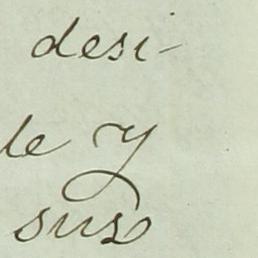 desi-
le y
sus